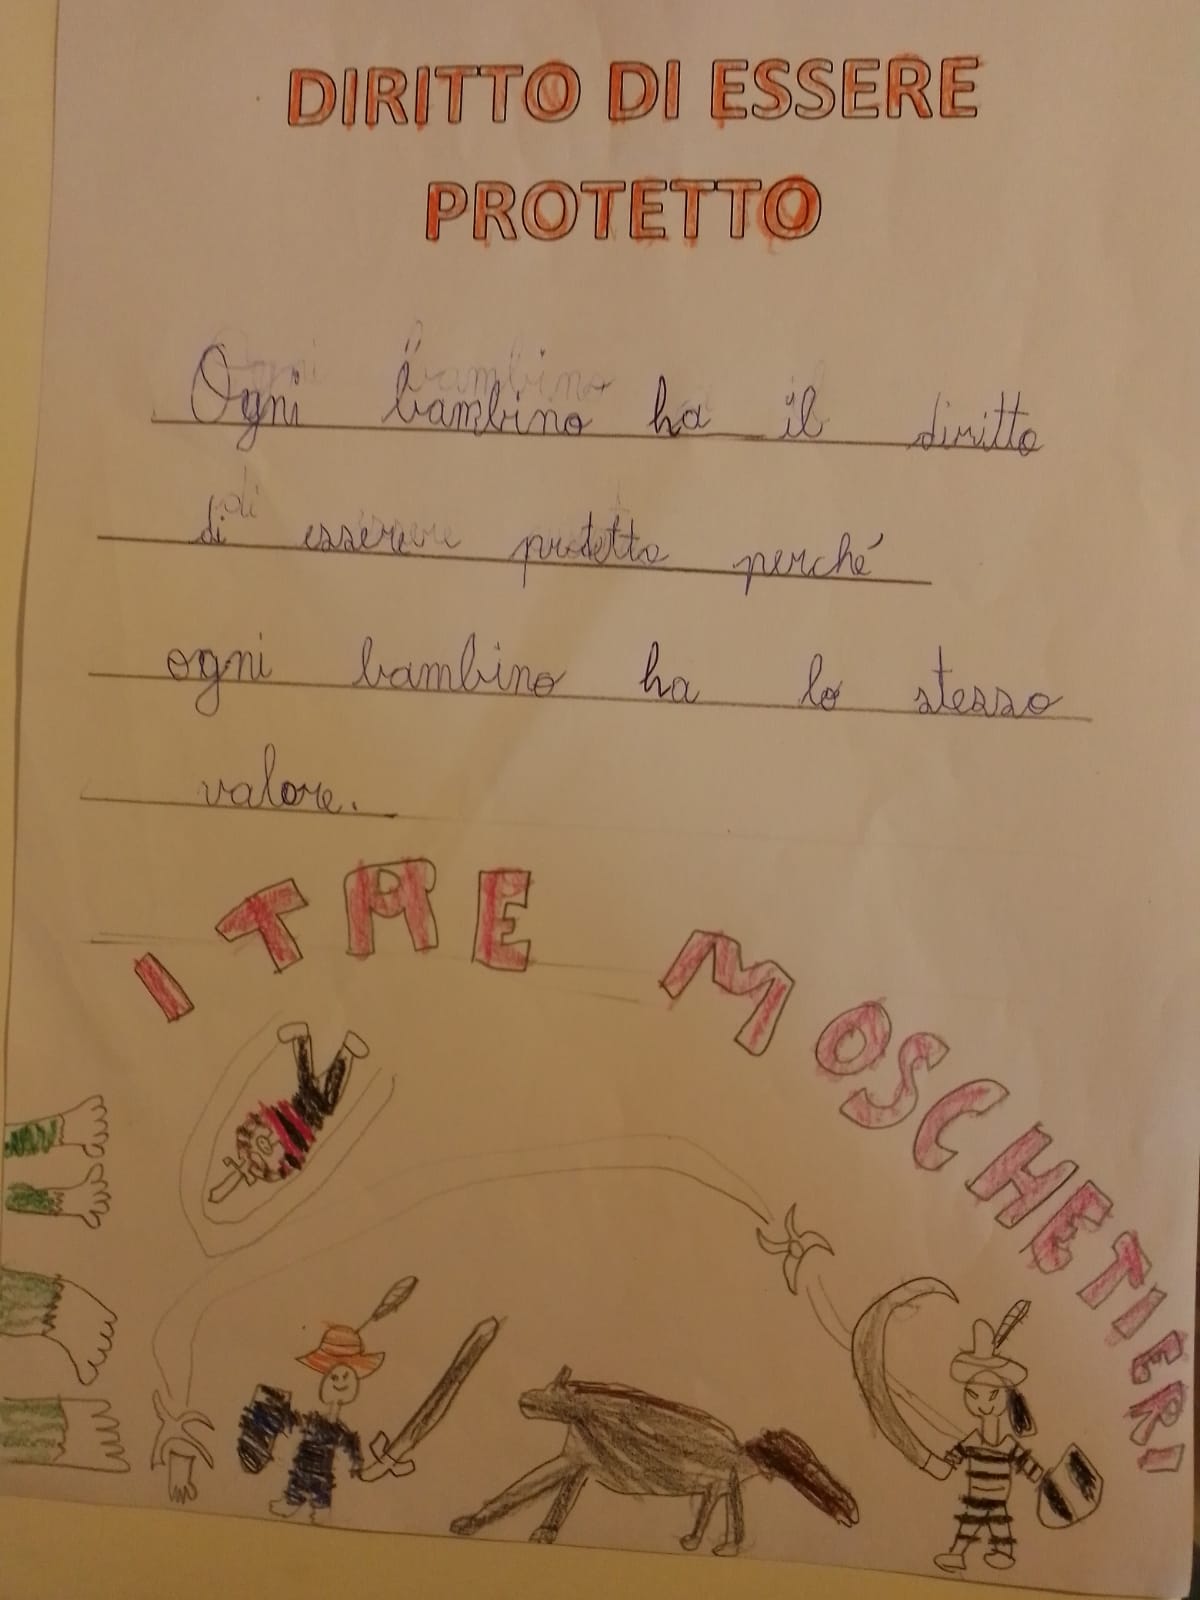 DIRITTO DI ESSERE
PROTETTO
Ogni bambino ha il diritto
di essere protetto perché
ogni bambino ha lo stesso
valore.
I TRE MOSCHETIERI